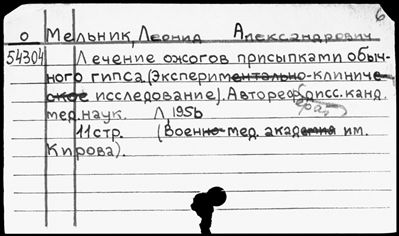 6
О Мельник, Леонид Александрович
54304 Лечение ожогов присыпками обыч-
ного гипса (Экспериментально-клиниче-
ское исследование). Автореферат дисс. канд.
мед. наук. Л, 1956
11 стр. (Военно-мед. академия им.
Кирова).